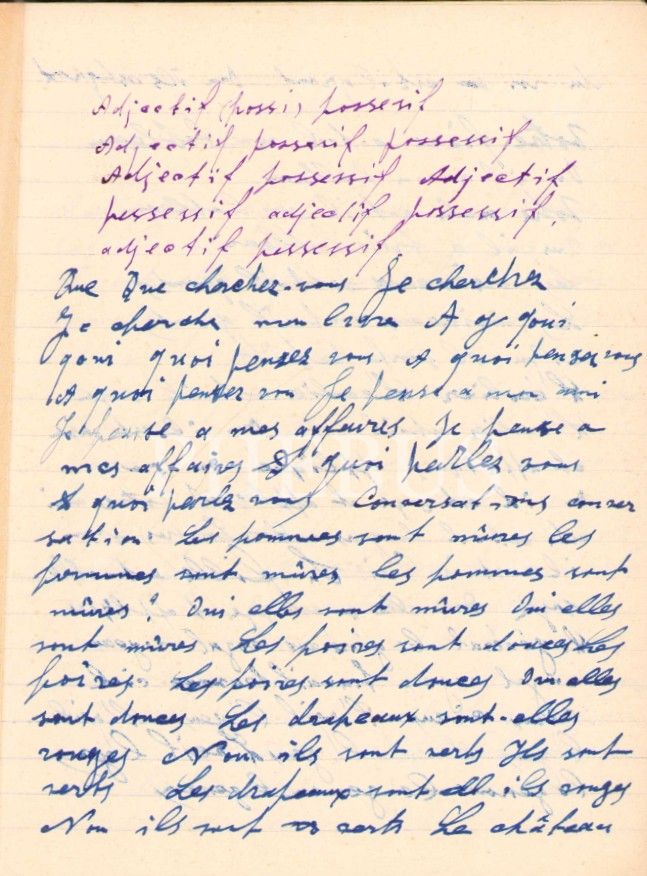 Adjectif (possi) possesif
Adjectif possesif possessif
Adjectif possessif Adjectif
pessessif adjectif possessif,
adjectif pessessif
Que Que cherchez-vous Je cherchez
Je cherche mon livre A qoui
qoui quoi pensez vous A quoi pensez vous
A quoi penser vou Je pense a mon
Je pense a mes affaires Je pense a
mes affaires D quoi parlez vous
A quoi parlez vous Conversations conver
sation Les pommes sont mûres les
pommes sont mûres les pommes sont
mûres? Oui elles sont mûres Oui elles
sont mûres Les poires sont douces Les
poires Les poires sont douces Oui elles
sont douces Les drapeaux sont-elles
rouges Non ils sont verts Ils sont
verts Les drapeaux sont ils rouges
Non ils sont verts Le château